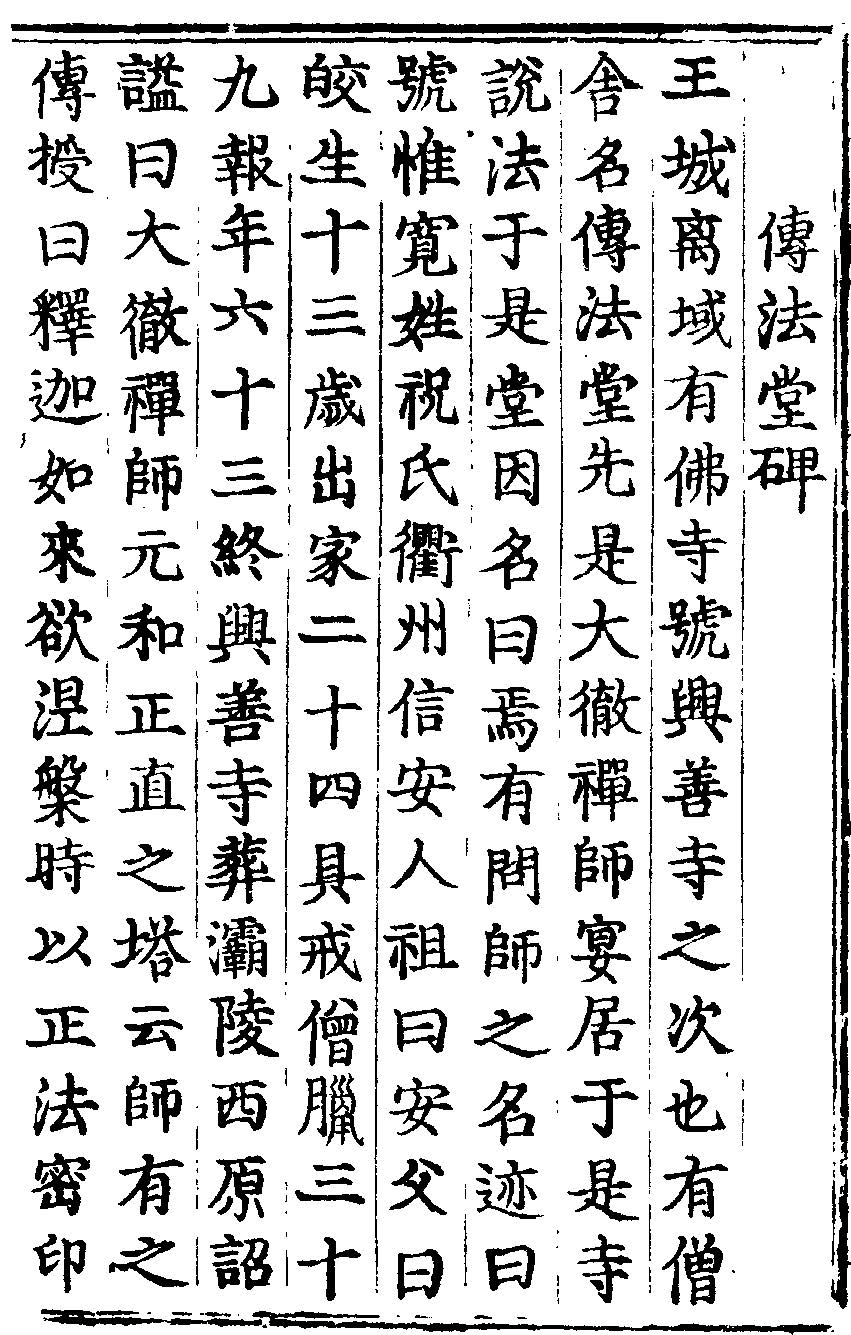 傳法堂碑
王城离域有佛寺號興善寺之次也有僧
舍名傳法堂先是大徹禪師宴居于是寺
說法于是堂因名曰焉有問師之名迹曰
號惟寬姓祝氏衢州信安人祖曰安父曰
皎生十三歲出家二十四具戒僧臘三十
九報年六十三終興善寺葬灞陵西原詔
謚曰大徹禪師元和正直之塔云師有之
傳授曰釋迦如來欲涅槃時以正法密印